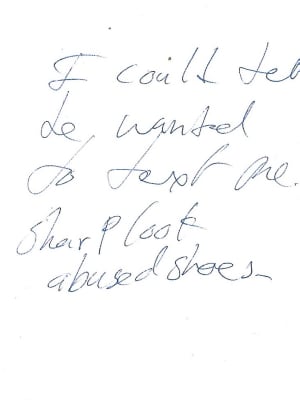 I could tell
he wanted
to text me.
sharp look
abused shoes-